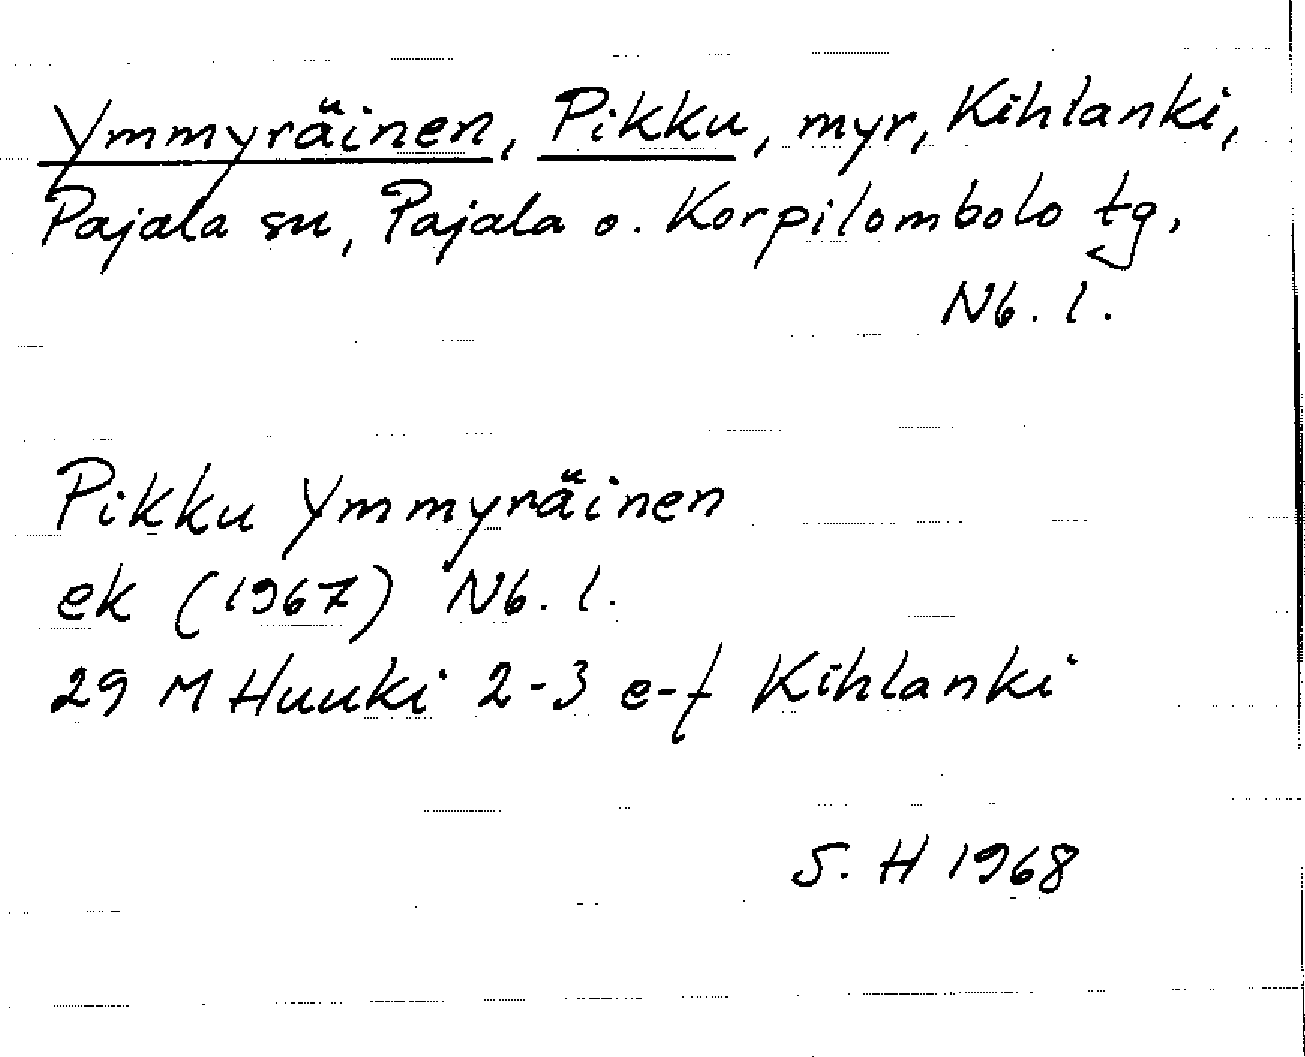 Ymmyräinen, Pikku, myr, Kihlanki,
Pajala sn, Pajala o. Korpilombolo tg,
Nb. l.
Pikku Ymmyräinen
ek (1967) Nb. l.
29 M Huuki 2-3 e-f Kihlanki
S. H 1968